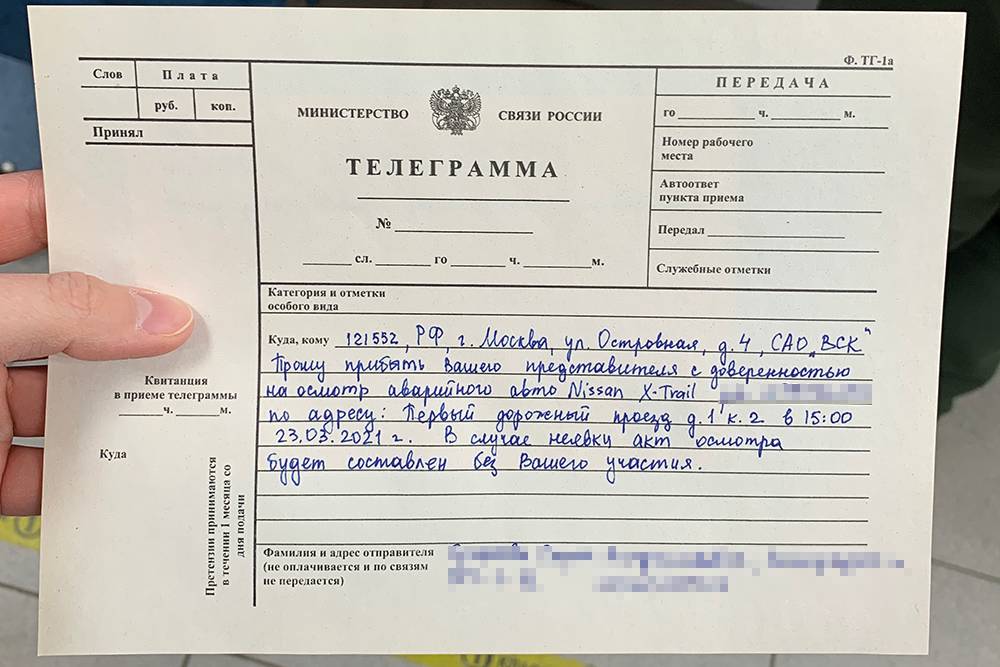 Ф. ТГ-1а
Слов
Плата
руб.
коп.
Принял
МИНИСТЕРСТВО СВЯЗИ РОССИИ
ТЕЛЕГРАММА
№
сл. го ч. м.
ПЕРЕДАЧА
го ч. м.
Номер рабочего
места
Автоответ
пункта приема
Передал
Служебные отметки
Категория и отметки
особого вида
Куда, кому 121552, РФ, г. Москва, ул. Островная, д. 4, САО „ВСК"
Прошу прибыть Вашего представителя с доверенностью
на осмотр аварийного авто Nissan X-Trail
по адресу: Первый дорожный проезд д. 1 к. 2 в 15:00
23.03.2021 г. В случае неявки акт осмотра
будет составлен без Вашего участия.
Квитанция
в приеме телеграммы
ч. м.
Куда
Претензии принимаются
в течении 1 месяца со
дня подачи
Фамилия и адрес отправителя
(не оплачивается и по связям
не передается)